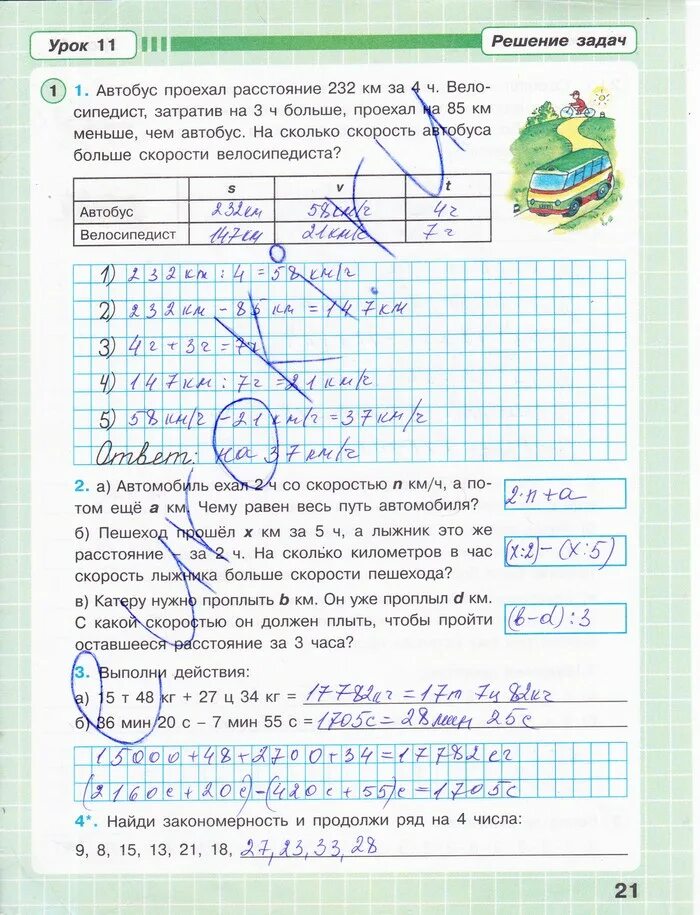 Урок 11
Решение задач
1 1. Автобус проехал расстояние 232 км за 4 ч. Вело-
сипедист, затратив на 3 ч больше, проехал на 85 км
меньше, чем автобус. На сколько скорость автобуса
больше скорости велосипедиста?
s v t
Автобус 232км 58км/ч 4ч
Велосипедист 147км 21км/ч 7ч
1) 232км : 4 = 58 км/ч
2) 232км - 85 км = 147км
3) 4ч + 3ч = 7ч
4) 147км : 7ч = 21 км/ч
5) 58 км/ч - 21 км/ч = 37км/ч
Ответ: на 37км/ч
2. а) Автомобиль ехал 2 ч со скоростью n км/ч, а по-
том ещё a км. Чему равен весь путь автомобиля?
2·n+a
б) Пешеход прошёл x км за 5 ч, а лыжник это же
расстояние – за 2 ч. На сколько километров в час
скорость лыжника больше скорости пешехода?
(x:2)-(x:5)
в) Катеру нужно проплыть b км. Он уже проплыл d км.
С какой скоростью он должен плыть, чтобы пройти
оставшееся расстояние за 3 часа?
(b-d):3
3. Выполни действия:
а) 15 т 48 кг + 27 ц 34 кг = 17782кг = 17т 7ц 82кг
б) 36 мин 20 с – 7 мин 55 с = 1705с = 28мин 25с
15000+48+2700+34=17782кг
(2160с+20с)-(420с+55)с=1705с
4*. Найди закономерность и продолжи ряд на 4 числа:
9, 8, 15, 13, 21, 18, 27, 23, 33, 28
21